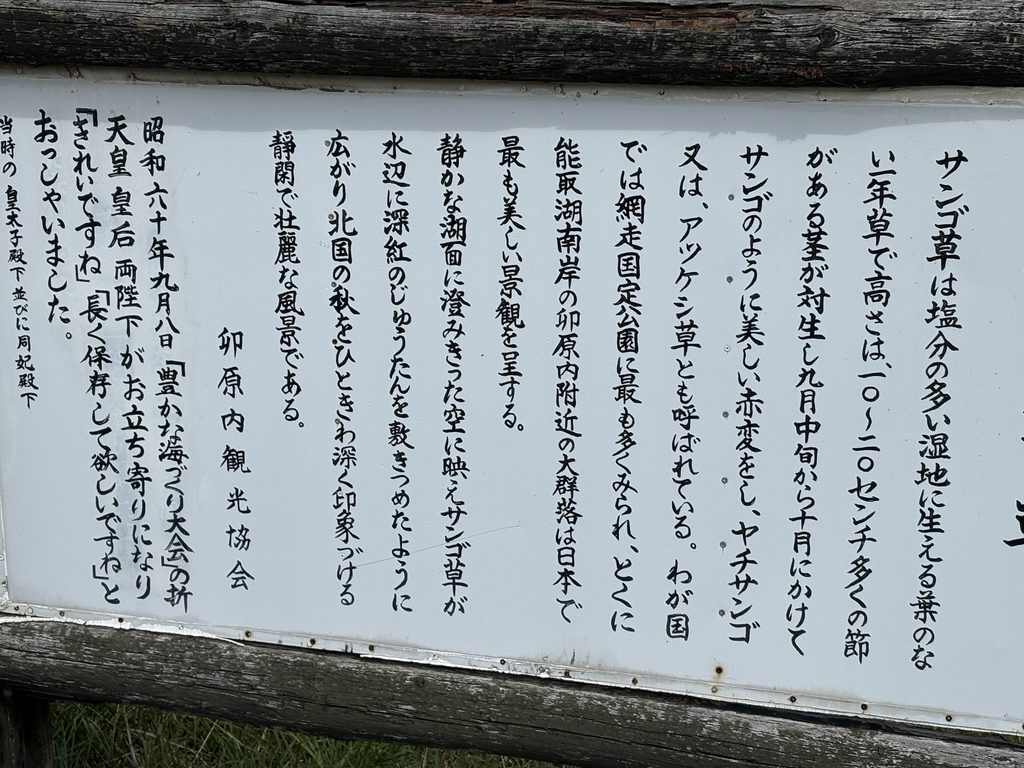 サンゴ草は塩分の多い湿地に生える葉のな
い一年草で高さは、一〇〜二〇センチ多くの節
がある茎が対生し九月中旬から十月にかけて
サンゴのように美しい赤変をし、ヤチサンゴ
又は、アツケシ草とも呼ばれている。わが国
では網走国定公園に最も多くみられ、とくに
能取湖南岸の卯原内附近の大群落は日本で
最も美しい景観を呈する。
静かな湖面に澄みきった空に映えサンゴ草が
水辺に深紅のじゅうたんを敷きつめたように
広がり北国の秋をひときわ深く印象づける
静閑で壮麗な風景である。
卯原内観光協会
昭和六十年九月八日「豊かな海づくり大会」の折
天皇皇后両陛下がお立ち寄りになり
「きれいですね」「長く保存して欲しいですね」と
おっしゃいました。
当時の皇太子殿下並びに同妃殿下